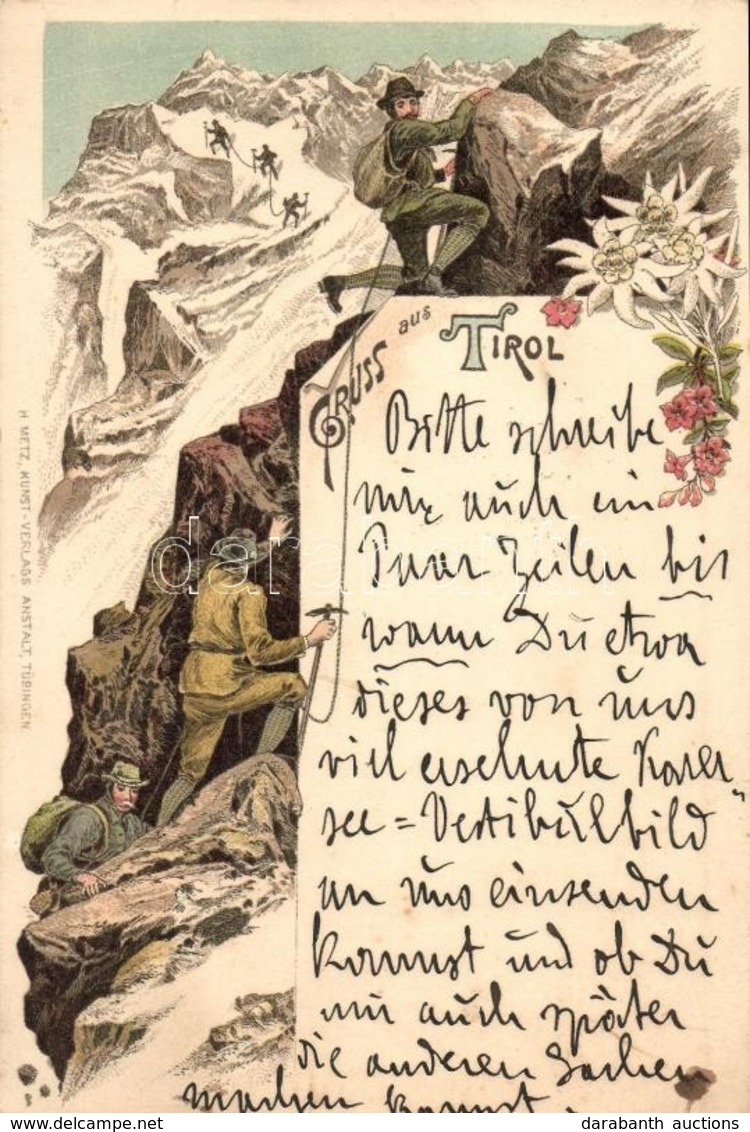 GRUSS aus TIROL
Bitte schreibe
mir auch ein
Paar Zeilen bis
wann Du etwa
dieses von uns
viel ersehnte Karer
see = Vestibulbild
an uns einsenden
kannst und ob Du
mir auch später
die anderen Sachen
machen kannst.
H. METZ, KUNST-VERLAGS ANSTALT, TÜBINGEN.
darabanth
darabanth auctions